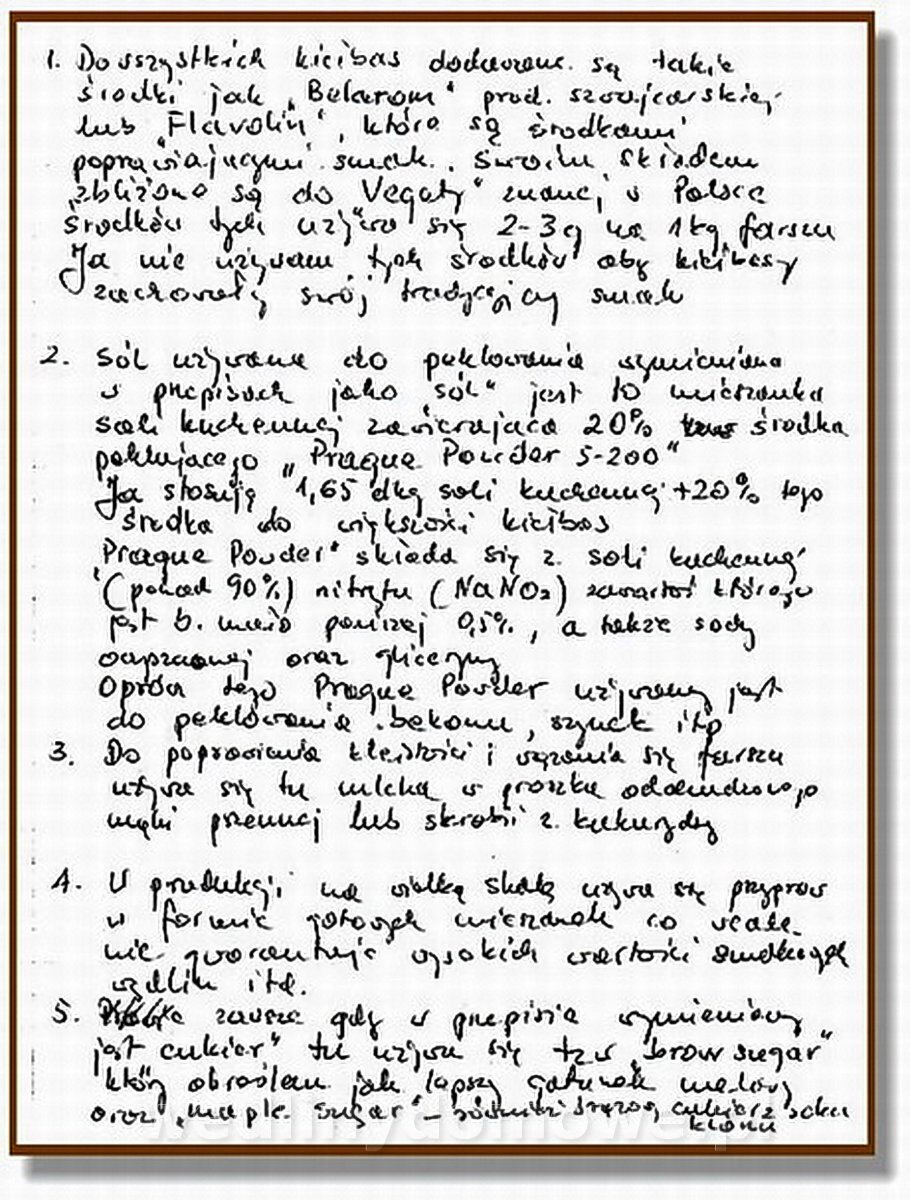 1. Do wszystkich kiełbas dodawane są takie
środki jak „Belarom" prod. szwajcarskiej
lub „Flavolin", które są środkami
poprawiającymi smak. Swoim składem
zbliżone są do „Vegety" znanej w Polsce
Środków tych używa się 2-3 g na 1 kg farszu
Ja nie używam tych środków aby kiełbasy
zachowały swój tradycyjny smak
2. Sól używana do peklowania wymieniana
w przepisach jako „sól" jest to mieszanka
soli kuchennej zawierająca 20% środka
peklującego „Prague Powder S-200"
Ja stosuję 1,65 dkg soli kuchennej +20% tego
środka do większości kiełbas
„Prague Powder" składa się z soli kuchennej
(ponad 90%) nitrytu (NaNO2) zawartość którego
jest b. mała poniżej 0,5%, a także sody
oczyszczonej oraz gliceryny
Oprócz tego Prague Powder używany jest
do peklowania bekonu, szynek itp
3. Do poprawiania kleistości i wiązania się farszu
używa się tu mleka w proszku odtłuszczonego
mąki pszennej lub skrobii z kukurydzy
4. W produkcji na wielką skalę używa się przypraw
w formie gotowych mieszanek co wcale
nie gwarantuje wysokich wartości smakowych
wędlin itd.
5. zawsze gdy w przepisie wymieniony
jest „cukier" tu używa się tzw „brow sugar"
który określam jak lepszy gatunek melasy
oraz „maple sugar" – również brązowy cukier z soku
klonu
wedlinydomowe.pl